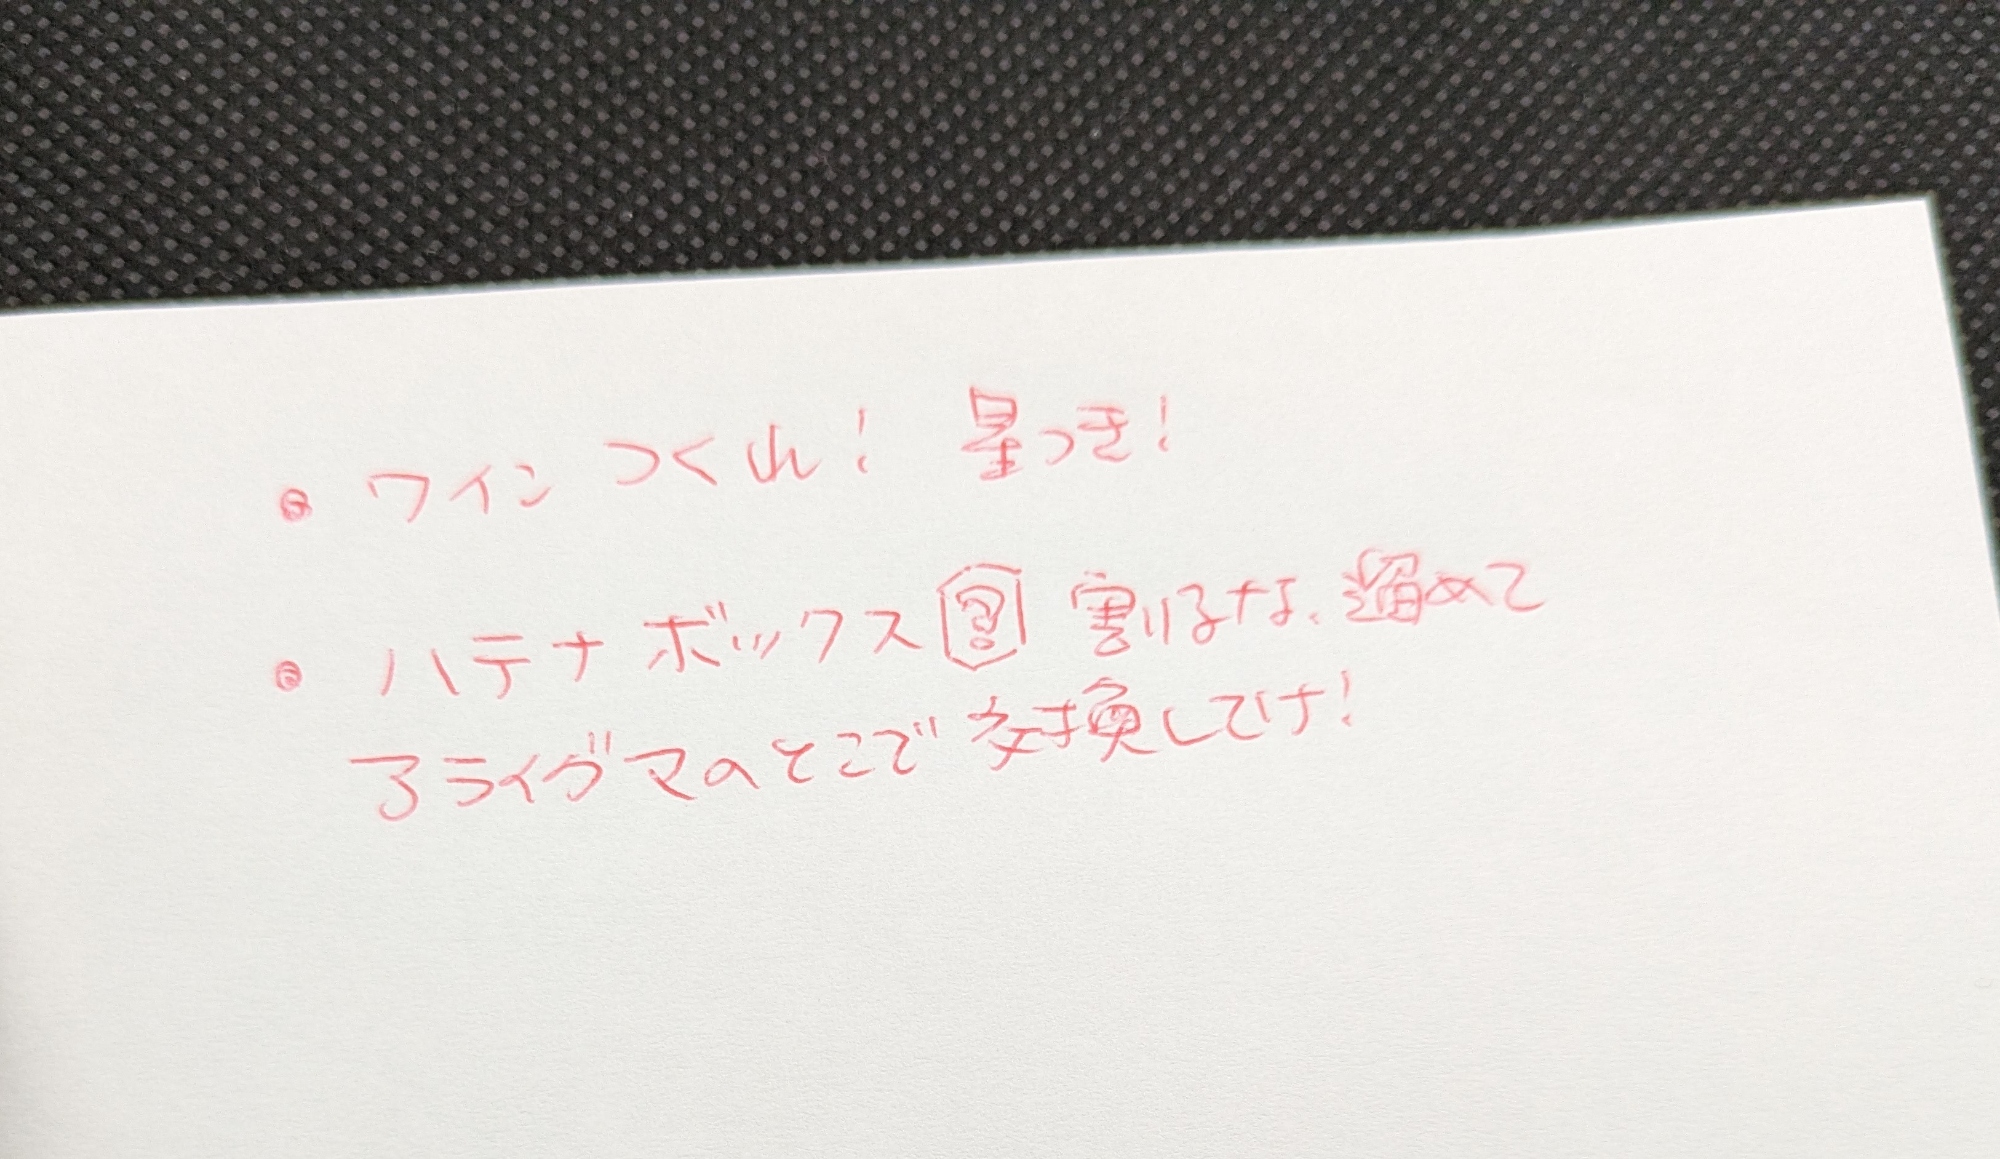 • ワイン つくれ! 星つき!
• ハテナボックス ? 割るな、溜めて
アライグマのとこで交換してけ!